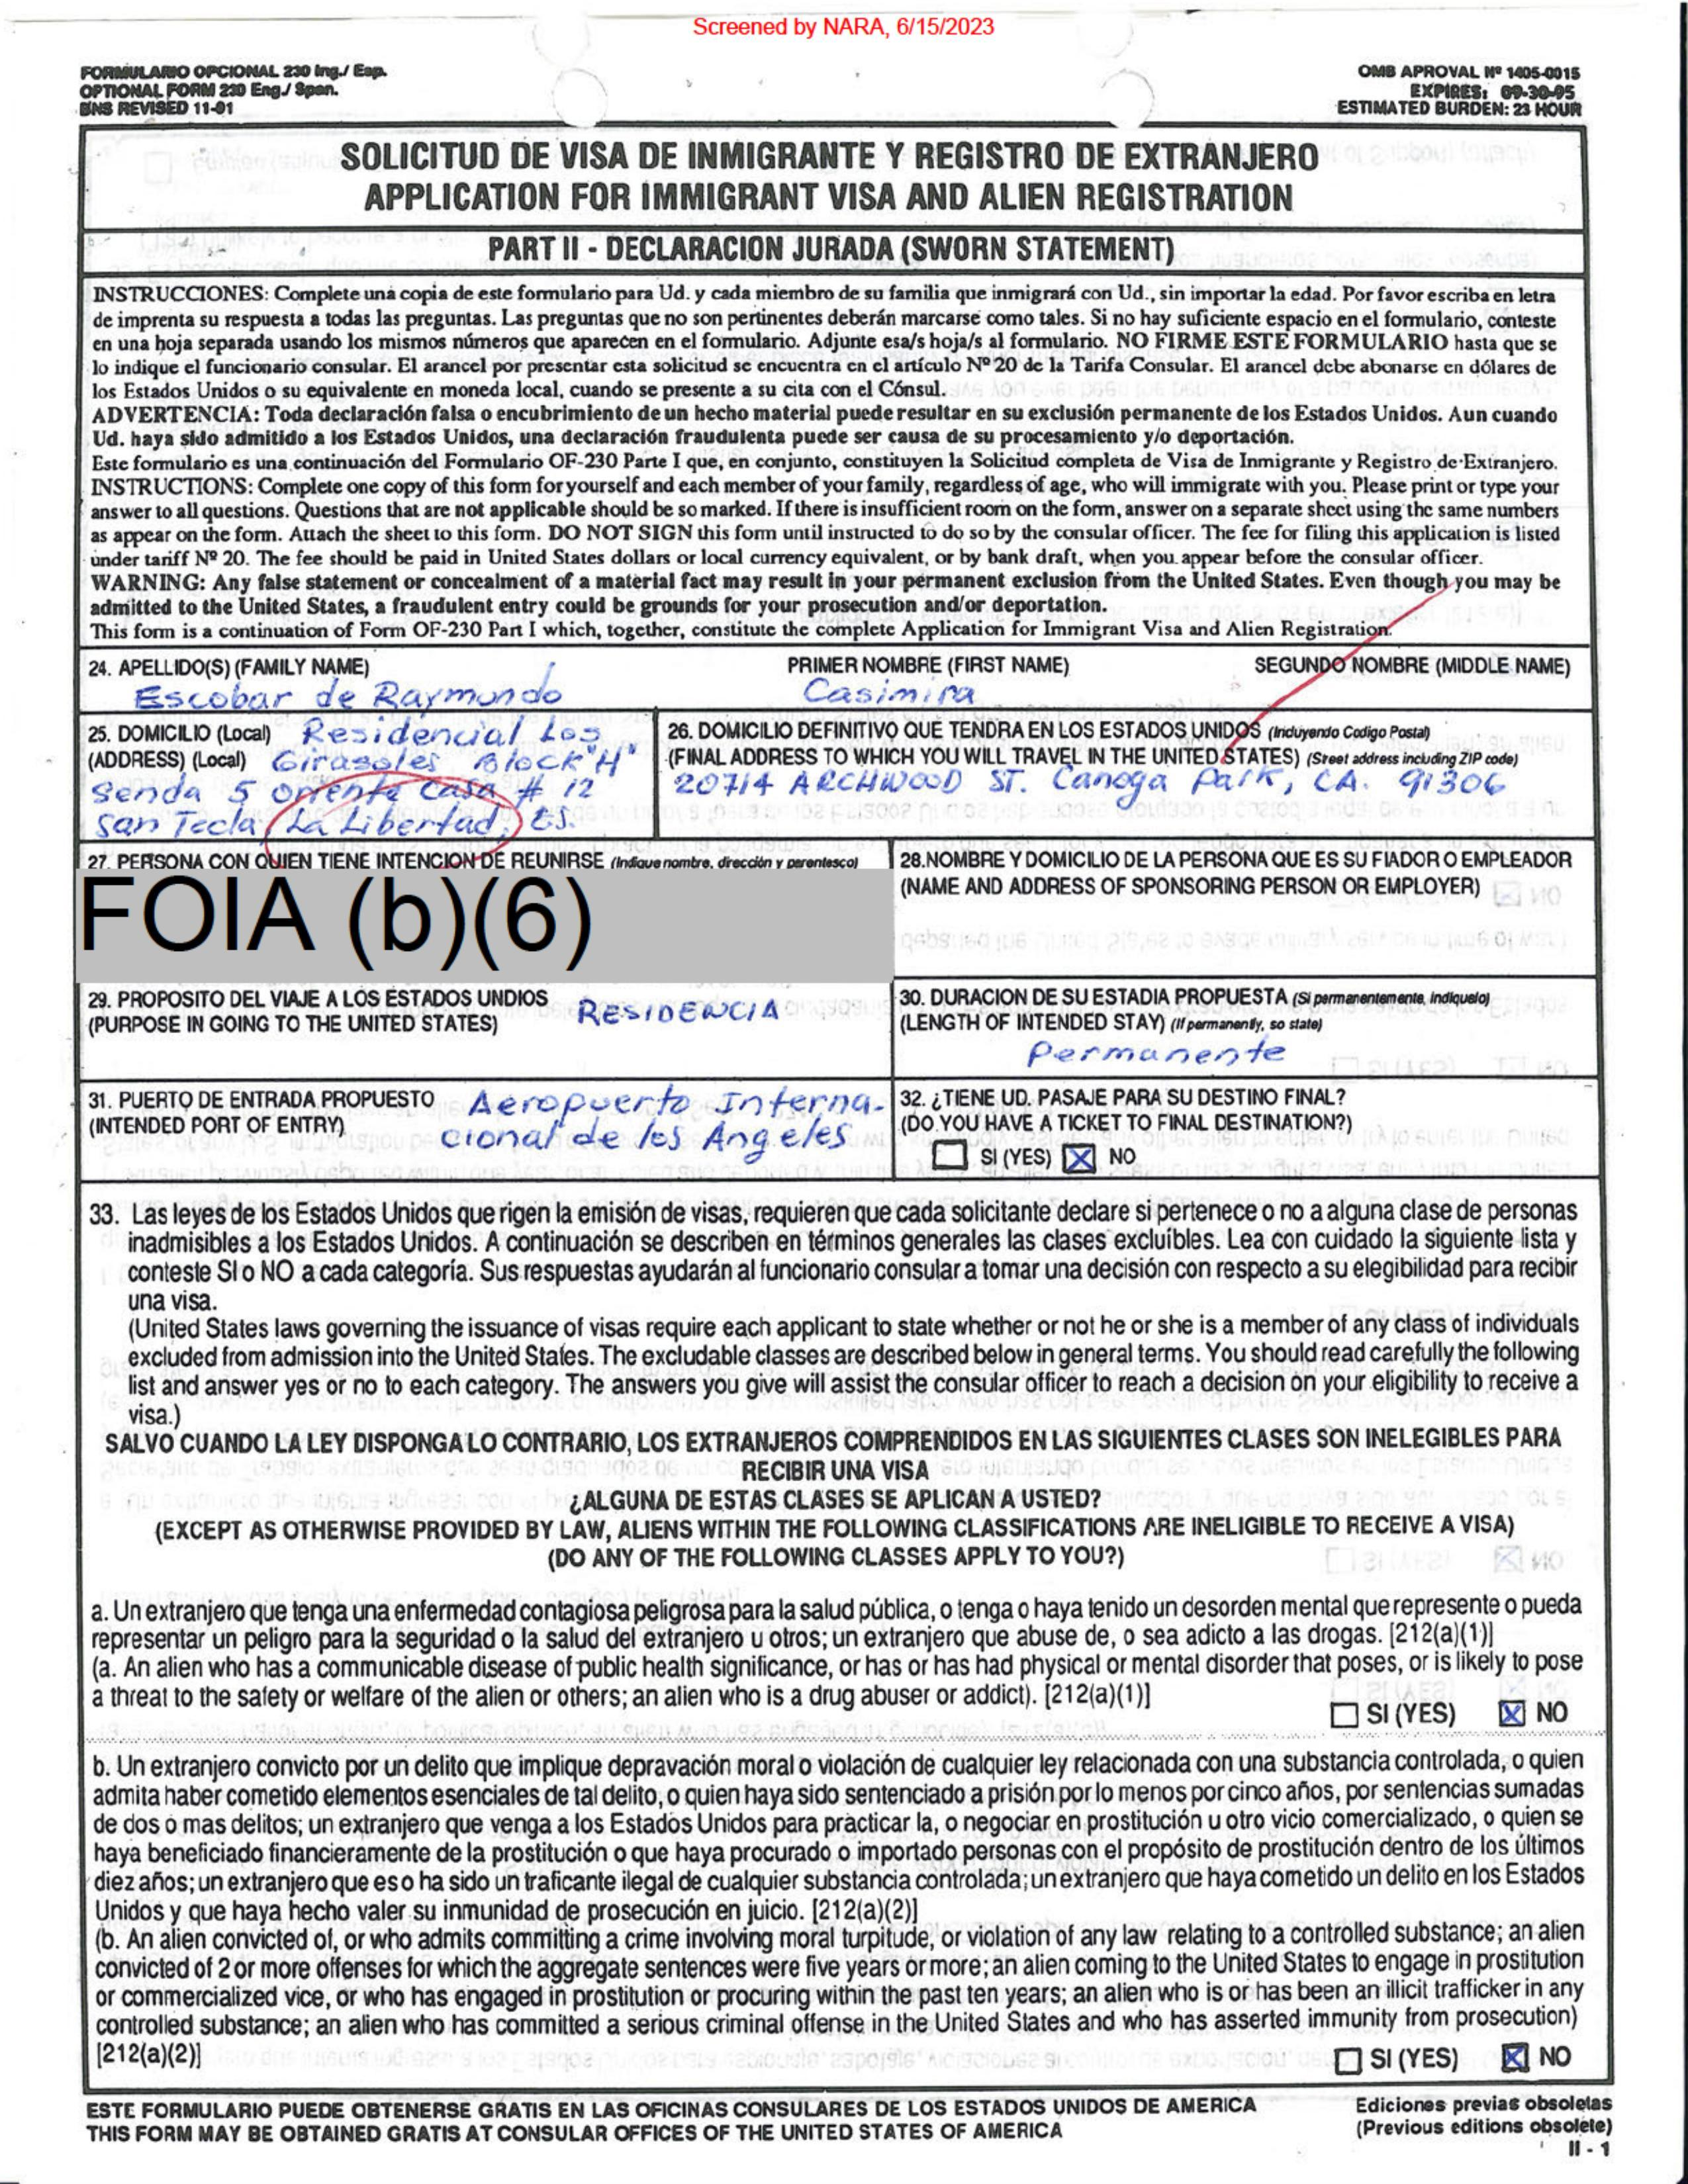 Screened by NARA, 6/15/2023
FORMULARIO OPCIONAL 230 Ing./ Esp.
OPTIONAL FORM 230 Eng./ Span.
BNS REVISED 11-91
OMB APROVAL Nº 1405-0015
EXPIRES: 09-30-95
ESTIMATED BURDEN: 23 HOUR
SOLICITUD DE VISA DE INMIGRANTE Y REGISTRO DE EXTRANJERO
APPLICATION FOR IMMIGRANT VISA AND ALIEN REGISTRATION
PART II - DECLARACION JURADA (SWORN STATEMENT)
INSTRUCCIONES: Complete una copia de este formulario para Ud. y cada miembro de su familia que inmigrará con Ud., sin importar la edad. Por favor escriba en letra
de imprenta su respuesta a todas las preguntas. Las preguntas que no son pertinentes deberán marcarse como tales. Si no hay suficiente espacio en el formulario, conteste
en una hoja separada usando los mismos números que aparecen en el formulario. Adjunte esa/s hoja/s al formulario. NO FIRME ESTE FORMULARIO hasta que se
lo indique el funcionario consular. El arancel por presentar esta solicitud se encuentra en el artículo Nº 20 de la Tarifa Consular. El arancel debe abonarse en dólares de
los Estados Unidos o su equivalente en moneda local, cuando se presente a su cita con el Cónsul.
ADVERTENCIA: Toda declaración falsa o encubrimiento de un hecho material puede resultar en su exclusión permanente de los Estados Unidos. Aun cuando
Ud. haya sido admitido a los Estados Unidos, una declaración fraudulenta puede ser causa de su procesamiento y/o deportación.
Este formulario es una continuación del Formulario OF-230 Parte I que, en conjunto, constituyen la Solicitud completa de Visa de Inmigrante y Registro de Extranjero.
INSTRUCTIONS: Complete one copy of this form for yourself and each member of your family, regardless of age, who will immigrate with you. Please print or type your
answer to all questions. Questions that are not applicable should be so marked. If there is insufficient room on the form, answer on a separate sheet using the same numbers
as appear on the form. Attach the sheet to this form. DO NOT SIGN this form until instructed to do so by the consular officer. The fee for filing this application is listed
under tariff Nº 20. The fee should be paid in United States dollars or local currency equivalent, or by bank draft, when you appear before the consular officer.
WARNING: Any false statement or concealment of a material fact may result in your permanent exclusion from the United States. Even though you may be
admitted to the United States, a fraudulent entry could be grounds for your prosecution and/or deportation.
This form is a continuation of Form OF-230 Part I which, together, constitute the complete Application for Immigrant Visa and Alien Registration.
24. APELLIDO(S) (FAMILY NAME) PRIMER NOMBRE (FIRST NAME) SEGUNDO NOMBRE (MIDDLE NAME)
Escobar de Raymundo Casimira
25. DOMICILIO (Local) Residencial Los
(ADDRESS) (Local) Girasoles Block "H"
Senda 5 Oriente Casa # 12
San Tecla, La Libertad, ES.
26. DOMICILIO DEFINITIVO QUE TENDRA EN LOS ESTADOS UNIDOS (Induyendo Codigo Postal)
(FINAL ADDRESS TO WHICH YOU WILL TRAVEL IN THE UNITED STATES) (Sreet address including ZIP code)
20714 ARCHWOOD ST. Canoga Park, CA. 91306
27. PERSONA CON QUIEN TIENE INTENCION DE REUNIRSE (Indique nombre, dirección y parentesco)
FOIA (b)(6)
28.NOMBRE Y DOMICILIO DE LA PERSONA QUE ES SU FIADOR O EMPLEADOR
(NAME AND ADDRESS OF SPONSORING PERSON OR EMPLOYER)
29. PROPOSITO DEL VIAJE A LOS ESTADOS UNDIOS
(PURPOSE IN GOING TO THE UNITED STATES) RESIDENCIA
30. DURACION DE SU ESTADIA PROPUESTA (Si permanentemente, indiquelo)
(LENGTH OF INTENDED STAY) (If permanently, so state)
Permanente
31. PUERTO DE ENTRADA PROPUESTO Aeropuerto Interna-
(INTENDED PORT OF ENTRY) cional de los Angeles
32. ¿TIENE UD. PASAJE PARA SU DESTINO FINAL?
(DO YOU HAVE A TICKET TO FINAL DESTINATION?)
SI (YES) X NO
33. Las leyes de los Estados Unidos que rigen la emisión de visas, requieren que cada solicitante declare si pertenece o no a alguna clase de personas
inadmisibles a los Estados Unidos. A continuación se describen en términos generales las clases excluíbles. Lea con cuidado la siguiente lista y
conteste SI o NO a cada categoría. Sus respuestas ayudarán al funcionario consular a tomar una decisión con respecto a su elegibilidad para recibir
una visa.
(United States laws governing the issuance of visas require each applicant to state whether or not he or she is a member of any class of individuals
excluded from admission into the United States. The excludable classes are described below in general terms. You should read carefully the following
list and answer yes or no to each category. The answers you give will assist the consular officer to reach a decision on your eligibility to receive a
visa.)
SALVO CUANDO LA LEY DISPONGA LO CONTRARIO, LOS EXTRANJEROS COMPRENDIDOS EN LAS SIGUIENTES CLASES SON INELEGIBLES PARA
RECIBIR UNA VISA
¿ALGUNA DE ESTAS CLASES SE APLICAN A USTED?
(EXCEPT AS OTHERWISE PROVIDED BY LAW, ALIENS WITHIN THE FOLLOWING CLASSIFICATIONS ARE INELIGIBLE TO RECEIVE A VISA)
(DO ANY OF THE FOLLOWING CLASSES APPLY TO YOU?)
a. Un extranjero que tenga una enfermedad contagiosa peligrosa para la salud pública, o tenga o haya tenido un desorden mental que represente o pueda
representar un peligro para la seguridad o la salud del extranjero u otros; un extranjero que abuse de, o sea adicto a las drogas. [212(a)(1)]
(a. An alien who has a communicable disease of public health significance, or has or has had physical or mental disorder that poses, or is likely to pose
a threat to the safety or welfare of the alien or others; an alien who is a drug abuser or addict). [212(a)(1)]
SI (YES) X NO
b. Un extranjero convicto por un delito que implique depravación moral o violación de cualquier ley relacionada con una substancia controlada, o quien
admita haber cometido elementos esenciales de tal delito, o quien haya sido sentenciado a prisión por lo menos por cinco años, por sentencias sumadas
de dos o mas delitos; un extranjero que venga a los Estados Unidos para practicar la, o negociar en prostitución u otro vicio comercializado, o quien se
haya beneficiado financieramente de la prostitución o que haya procurado o importado personas con el propósito de prostitución dentro de los últimos
diez años; un extranjero que es o ha sido un traficante ilegal de cualquier substancia controlada; un extranjero que haya cometido un delito en los Estados
Unidos y que haya hecho valer su inmunidad de prosecución en juicio. [212(a)(2)]
(b. An alien convicted of, or who admits committing a crime involving moral turpitude, or violation of any law relating to a controlled substance; an alien
convicted of 2 or more offenses for which the aggregate sentences were five years or more; an alien coming to the United States to engage in prostitution
or commercialized vice, or who has engaged in prostitution or procuring within the past ten years; an alien who is or has been an illicit trafficker in any
controlled substance; an alien who has committed a serious criminal offense in the United States and who has asserted immunity from prosecution)
[212(a)(2)]
SI (YES) X NO
ESTE FORMULARIO PUEDE OBTENERSE GRATIS EN LAS OFICINAS CONSULARES DE LOS ESTADOS UNIDOS DE AMERICA
THIS FORM MAY BE OBTAINED GRATIS AT CONSULAR OFFICES OF THE UNITED STATES OF AMERICA
Ediciones previas obsoletas
(Previous editions obsolete)
II - 1